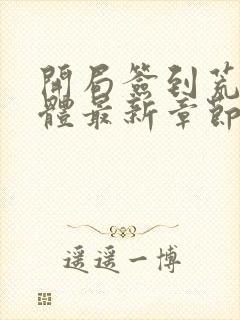 開局簽到荒
體最新章節
遥遥一博